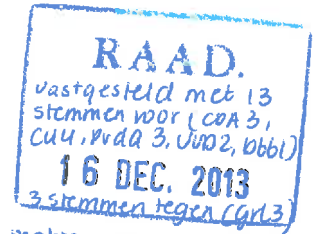 RAAD.
vastgesteld met 13
stemmen voor (CDA 3,
CU4, PvdA 3, VVD2, Dbbl)
16 DEC. 2013
3 stemmen tegen (GrL3)